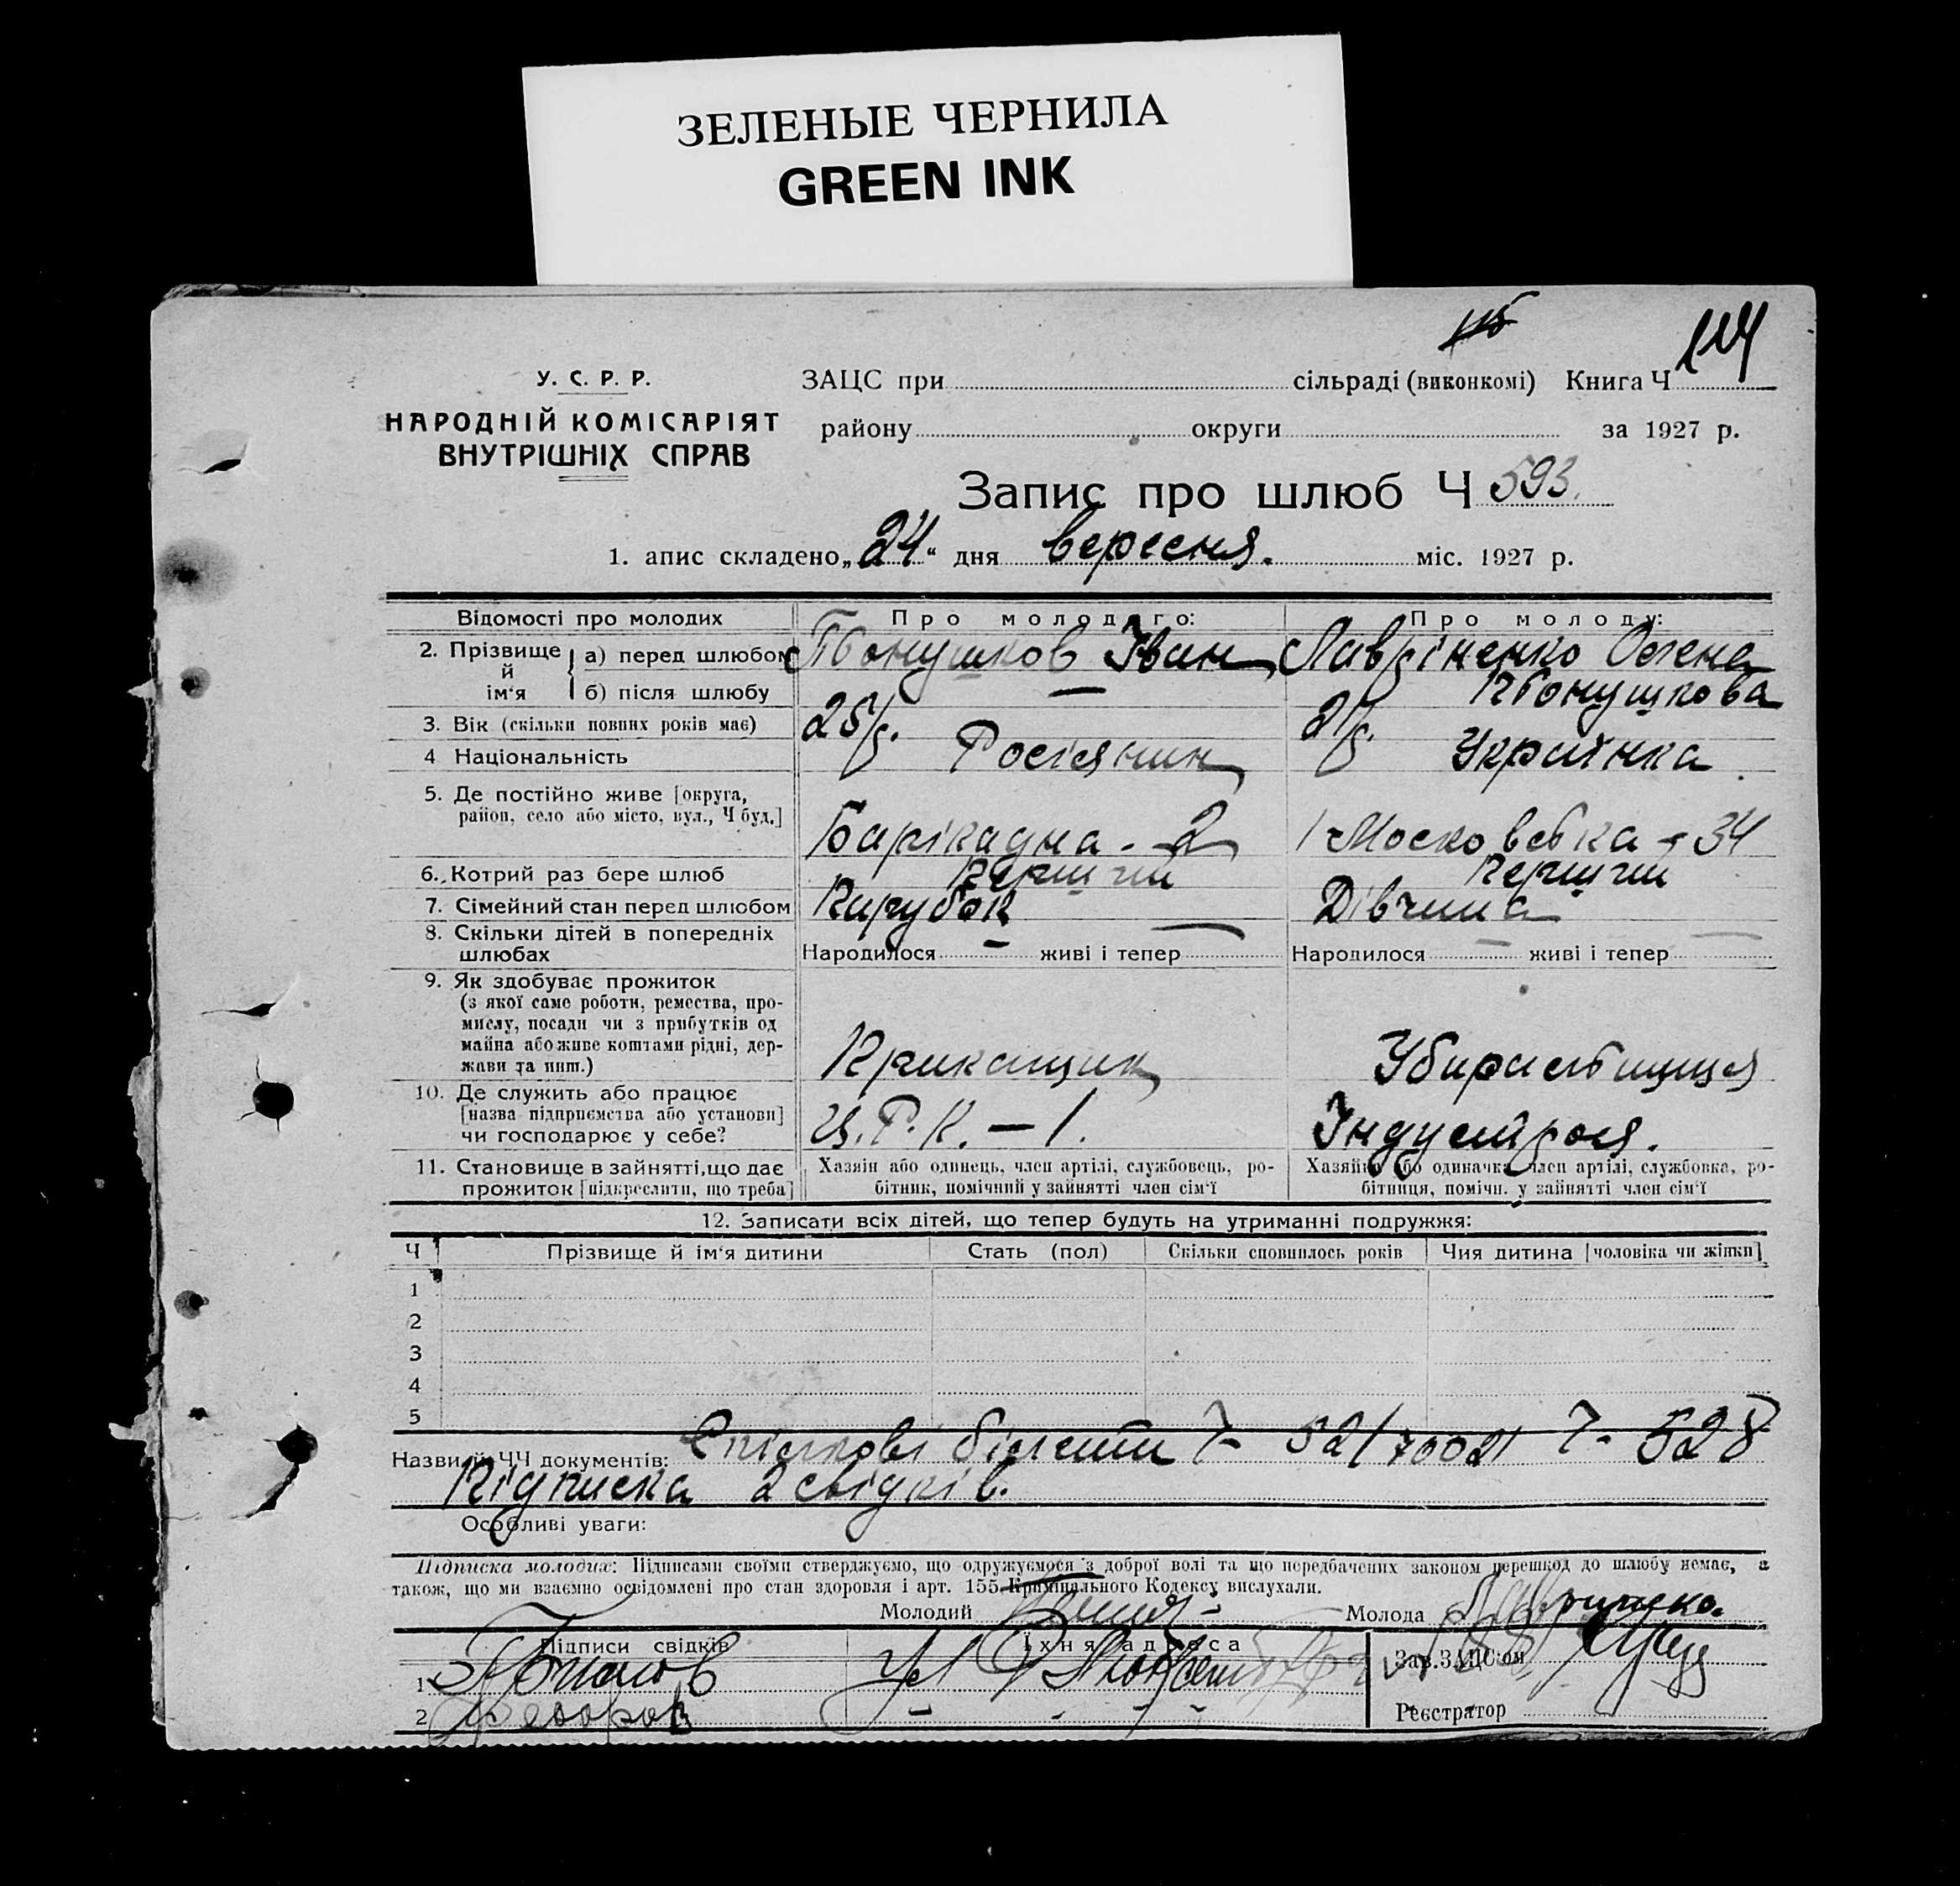 ЗЕЛЕНЫЕ ЧЕРНИЛА
GREEN INK
115
114
У. С. Р. Р.
НАРОДНІЙ КОМІСАРІЯТ
ВНУТРІШНІХ СПРАВ
ЗАЦС при сільраді (виконкомі) Книга Ч
району округи за 1927 р.
Запис про шлюб Ч 593.
1. апис складено „24“ дня вересня. міс. 1927 р.
Відомості про молодих Про молодого: Про молоду:
2. Прізвище й ім‘я а) перед шлюбом Іван Лавріненко Олена
б) після шлюбу —
3. Вік (скільки повних років має) 25 р. 21 р.
4 Національність Росіянин Українка
5. Де постійно живе [округа, район, село або місто, вул., Ч буд.] Барікадна - 2 Московська - 34
6. Котрий раз бере шлюб Перший Перший
7. Сімейний стан перед шлюбом Парубок Дівчина
8. Скільки дітей в попередніх шлюбах Народилося — живі і тепер — Народилося — живі і тепер —
9. Як здобуває прожиток
(з якої саме роботи, ремества, про-
мислу, посади чи з прибутків од
майна або живе коштами рідні, дер-
жави та инш.) Приказщик
10. Де служить або працює
[назва підприємства або установи]
чи господарює у себе? Ц.Р.К. — 1.
11. Становище в зайнятті, що дає
прожиток [підкреслити, що треба]
Хазяін або одинець, член артілі, службовець, ро-
бітник, помічний у зайнятті член сім‘ї
Хазяйка або одиначка член артілі, службовка, ро-
бітниця, помічн. у зайнятті член сім‘ї
12. Записати всіх дітей, що тепер будуть на утриманні подружжя:
Ч Прізвище й ім‘я дитини Стать (пол) Скільки сповнилось років Чия дитина [чоловіка чи жінки]
1
2
3
4
5
Назви й ЧЧ документів: Спілкові білети Ч- 52/70021 Ч- 528
Підписка 2 свідків.
Особливі уваги:
Підписка молодих: Підписами своїми стверджуємо, що одружуємося з доброї волі та що передбачених законом перешкод до шлюбу немає, а
також, що ми взаємно освідомлені про стан здоровля і арт. 155 Кримінального Кодексу вислухали.
Молодий Молода
Підписи свідків Їхня адреса Зав. ЗАЦС‘ом
1
2 Федоров Реєстратор